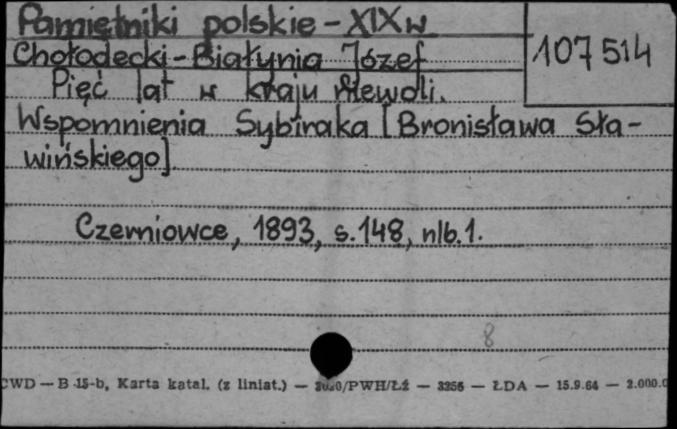 Pamiętniki polskie - XIX w
107514
Chołodecki - Białynia Józef
Pięć lat w kraju niewoli.
Wspomnienia Sybiraka [Bronisława Sła-
wińskiego]
Czerniowce, 1893, s. 148, nlb. 1.
8
CWD — B-15-b, Karta katal. (z liniat.) — 3020/PWH/Łź — 3256 — ŁDA — 15.9.64 — 2.000.0